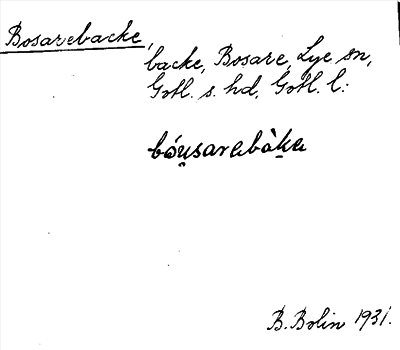 Bosarebacke,
backe, Bosare, Lye sn,
Gotl. s. hd, Gotl. l.:
bóu̯sarabàka
B. Bolin 1931.